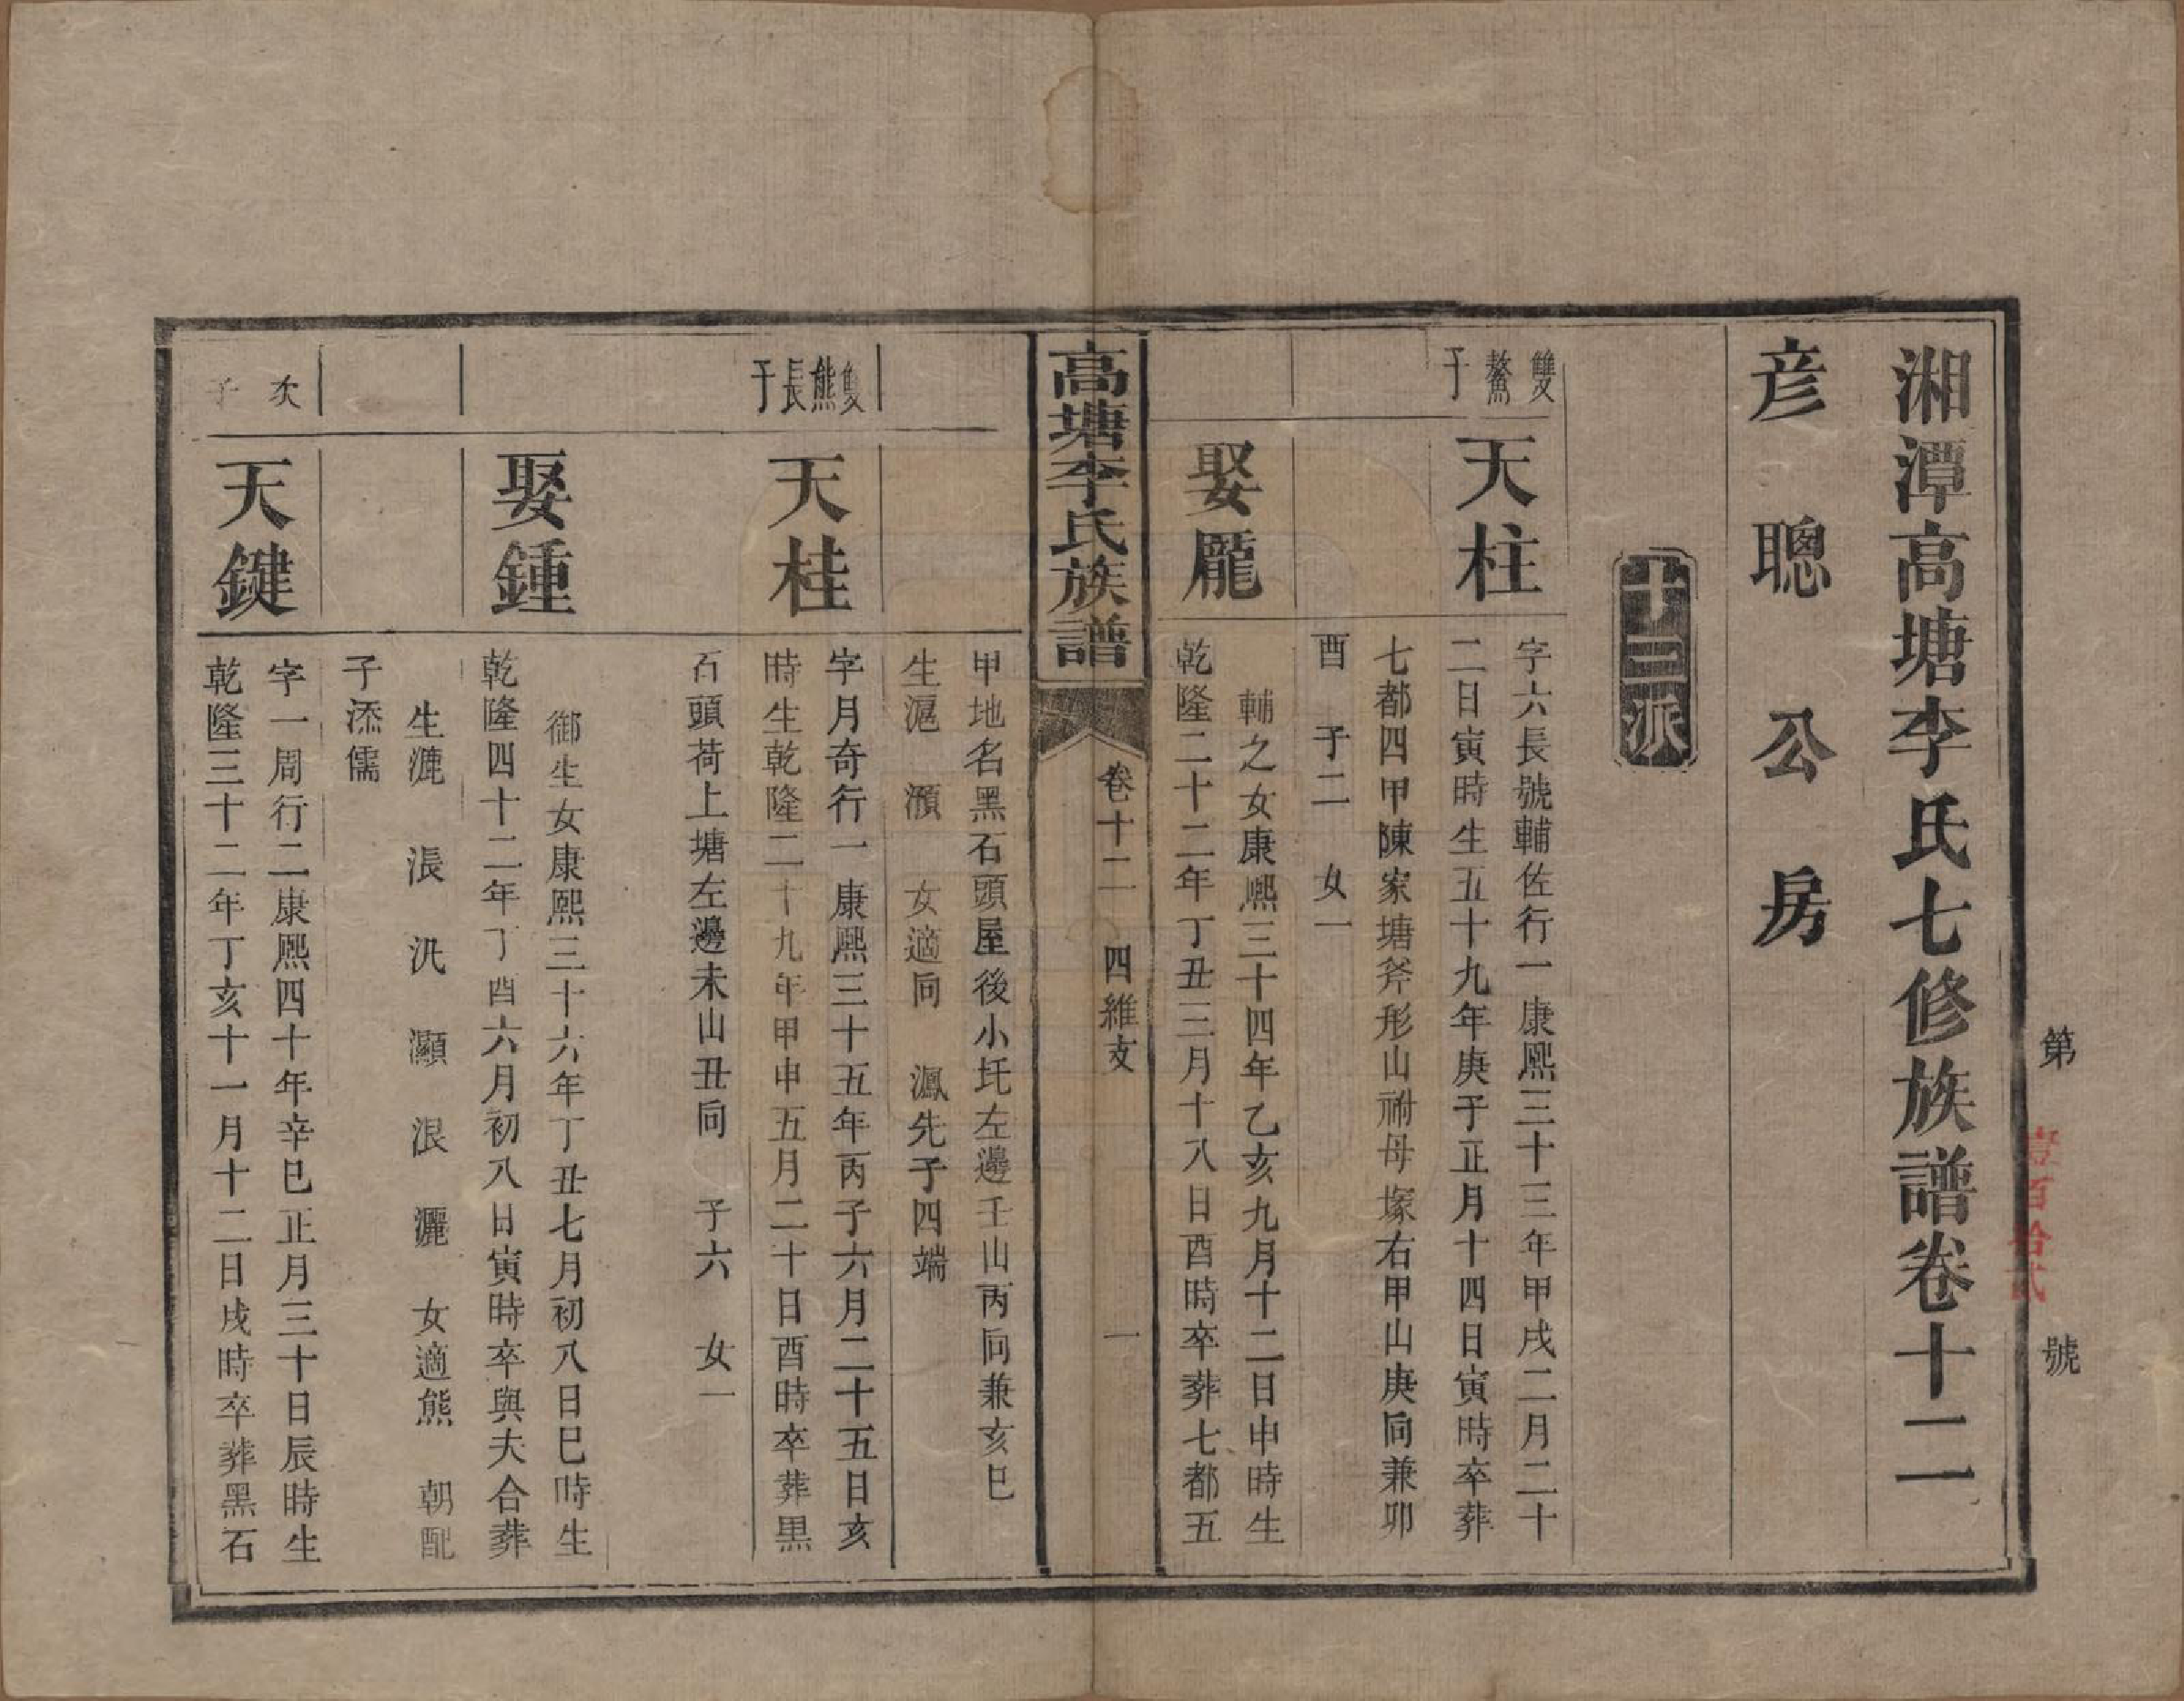 第
壹百拾貳
號
湘潭高塘李氏七修族譜卷十二
彦聰公房
十三派
雙鰲子
天柱
字六長號輔佐行一康熙三十三年甲戌二月二十
二日寅時生五十九年庚子正月十四日寅時卒葬
七都四甲陳家塘斧形山祔母塚右甲山庚向兼卯
酉 子二 女一
娶龎
輔之女康熙三十四年乙亥九月十二日申時生
乾隆二十二年丁丑三月十八日酉時卒葬七都五
高塘李氏族譜
卷十二 四維支
一
甲地名黑石頭屋後小圫左邊壬山丙向兼亥巳
生滬 澦 女適向 渢先子四端
雙熊長子
天桂
字月奇行一康熙三十五年丙子六月二十五日亥
時生乾隆二十九年甲申五月二十日酉時卒葬黑
石頭荷上塘左邊未山丑向 子六 女一
娶鍾
御生女康熙三十六年丁丑七月初八日巳時生
乾隆四十二年丁酉六月初八日寅時卒與夫合葬
生漉 漲 汎 灝 泿 灑 女適熊 朝配
子添儒
次子
天鍵
字一周行二康熙四十年辛巳正月三十日辰時生
乾隆三十二年丁亥十一月十二日戌時卒葬黑石